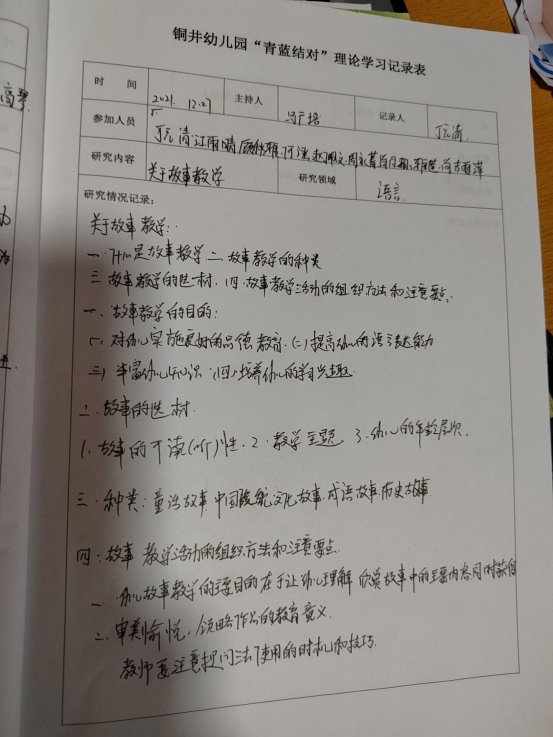 铜井幼儿园“青蓝结对”理论学习记录表
时 间 2021. 12.27 主持人 记录人
参加人员
研究内容 关于故事教学 研究领域 语言
研究情况记录:
关于故事教学:
一. 什么是故事教学 二. 故事教学的种类
三. 故事教学的选材. 四. 故事教学活动的组织方法和注意要点.
一. 故事教学的目的:
(一) 对幼儿实施良好的品德教育. (二) 提高幼儿的语言表达能力
(三) 丰富幼儿知识. (四) 培养幼儿的学习兴趣.
二. 故事的选材.
1. 故事的可读(听)性. 2. 教学主题 3. 幼儿的年龄层次.
三. 种类: 童话故事 中国传统文化故事. 成语故事. 历史故事
四. 故事教学活动的组织方法和注意要点.
一. 幼儿故事教学的主要目的在于让幼儿理解 欣赏故事中的主要内容, 同时获得
二. 审美愉悦, 领略作品的教育意义.
教师要注意提问法使用的时机和技巧.